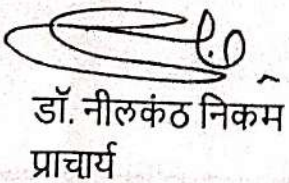 डॉ. नीलकंठ निकम
प्राचार्य